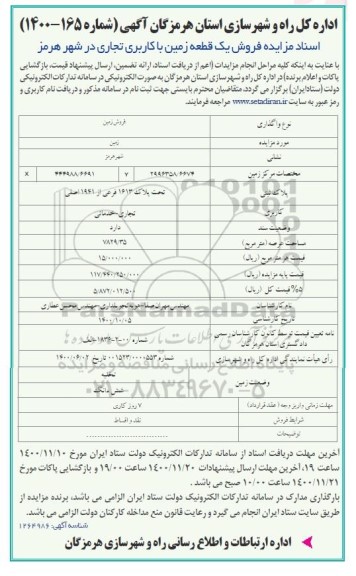 اداره کل راه و شهرسازی استان هرمزگان آگهی (شماره ۱۶۵-۱۴۰۰)
اسناد مزایده فروش یک قطعه زمین با کاربری تجاری در شهر هرمز
با عنایت به اینکه کلیه مراحل انجام مزایدات (اعم از دریافت اسناد، ارائه تضمین، ارسال پیشنهاد قیمت، بازگشایی
پاکات و اعلام برنده) در اداره کل راه و شهرسازی استان هرمزگان به صورت الکترونیکی در سامانه تدارکات الکترونیکی
دولت (ستاد ایران) برگزار می گردد. متقاضیان محترم بایستی جهت ثبت نام در سامانه مذکور و دریافت نام کاربری و
رمز عبور به سایت www.setadiran.ir مراجعه فرمایند.
نوع واگذاری فروش زمین
مورد مزایده زمین
نشانی شهر هرمز
مختصات مرکز زمین ۲۹۹۶۳۵۸.۶۶۷۴ Y ۴۴۴۹۸۸.۶۶۹۱ X
پلاک ثبتی تحت پلاک ۱۶۱۳ فرعی از ۱۹۶۱ اصلی
کاربری تجاری-خدماتی
وضعیت سند دارد
مساحت عرصه (متر مربع) ۷۸۲۹/۳۵
قیمت هر متر مربع (ریال) ۱۵/۰۰۰/۰۰۰
قیمت پایه مزایده (ریال) ۱۱۷/۴۴۰/۲۵۰/۰۰۰
۵% قیمت کل (ریال) ۵/۸۷۲/۰۱۲/۵۰۰
نام کارشناسان
تاریخ کارشناسی ۱۴۰۰/۱۰/۰۵
نامه تعیین قیمت توسط کانون کارشناسان رسمی
دادگستری استان هرمزگان
رأی هیأت نمایندگی اداره کل راه و شهرسازی
وضعیت زمین تخلیه
شش دانگ
مهلت زمانی واریز وجه (عقد قرارداد) ۷ روز کاری
شرایط فروش نقد و اقساط
توضیحات
آخرین مهلت دریافت اسناد از سامانه تدارکات الکترونیک دولت ستاد ایران مورخ ۱۴۰۰/۱۱/۱۰
ساعت ۱۹، آخرین مهلت ارسال پیشنهادات ۱۴۰۰/۱۱/۲۰ ساعت ۱۹/۰۰ و بازگشایی پاکات مورخ
۱۴۰۰/۱۱/۲۱ ساعت ۱۰/۰۰ صبح می باشد.
بارگذاری مدارک در سامانه تدارکات الکترونیک دولت ستاد ایران الزامی می باشد، برنده مزایده از
طریق سایت ستاد ایران انجام می گیرد و رعایت قانون منع مداخله کارکنان دولت الزامی می باشد.
شناسه آگهی: ۱۲۶۴۹۸۶
اداره ارتباطات و اطلاع رسانی راه و شهرسازی هرمزگان